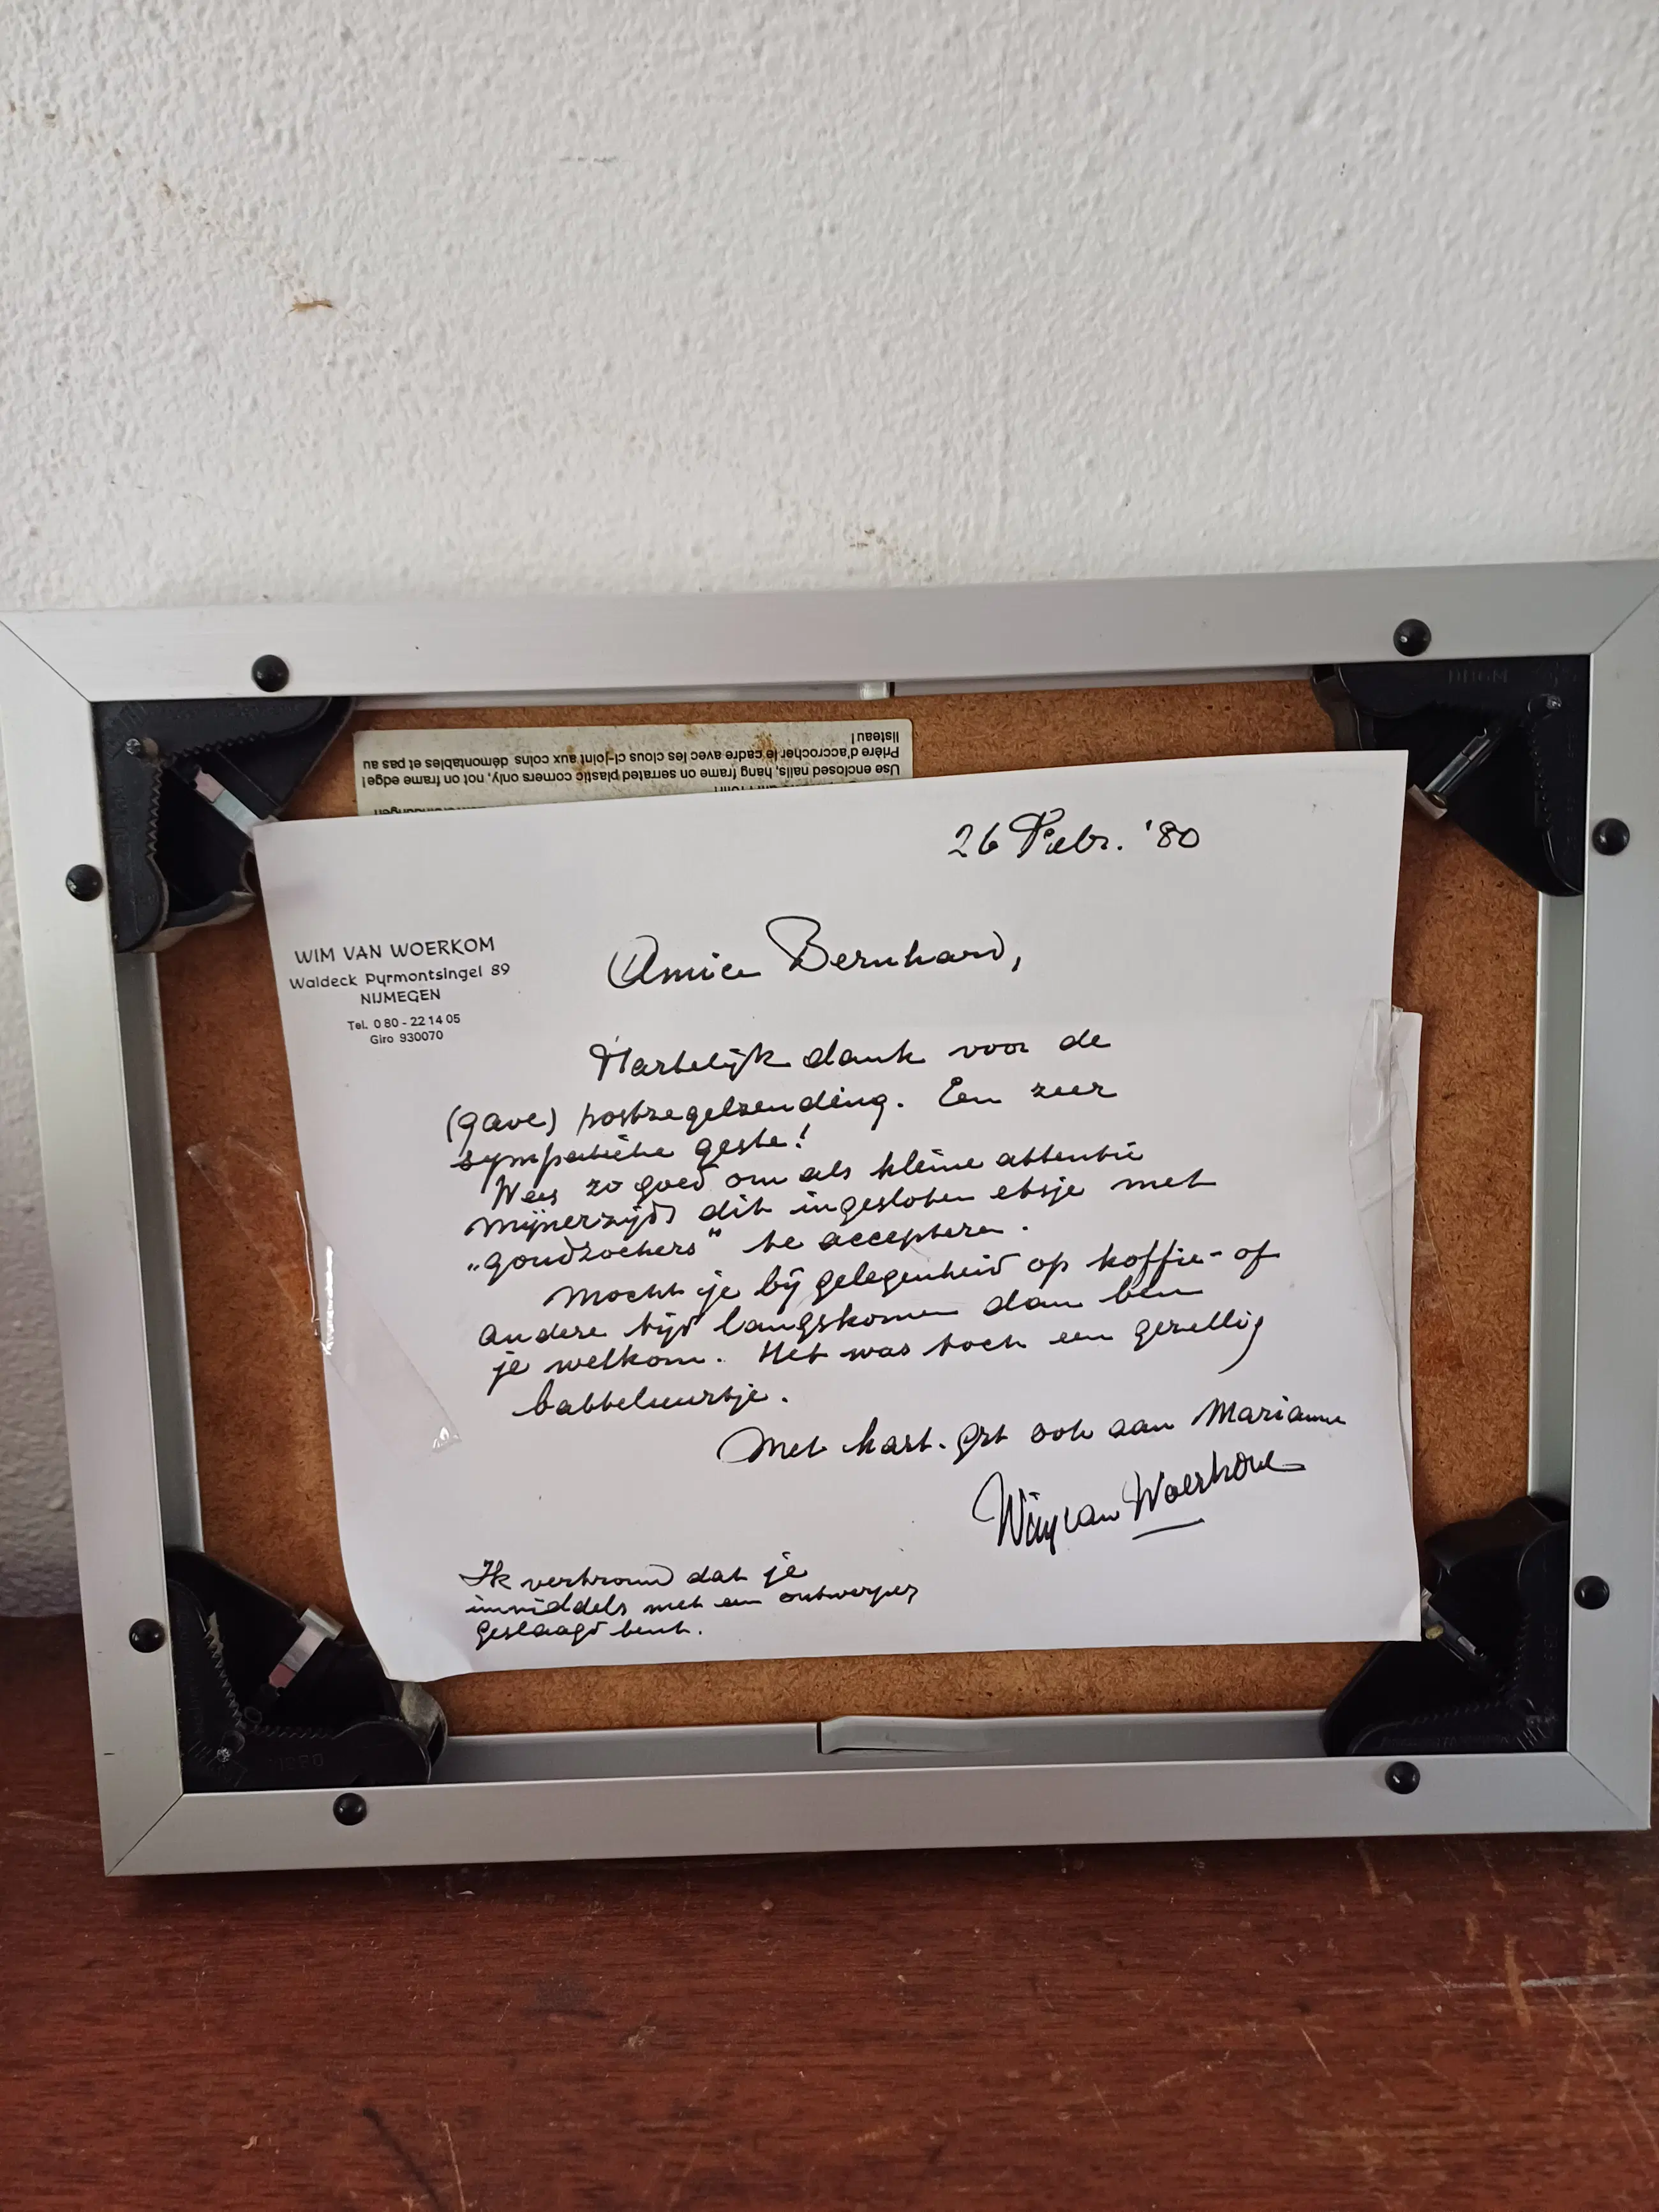 listeau!
Prière d'accrocher le cadre avec les clous ci-joint aux coins démontables et pas au
Use enclosed nails, hang frame on serrated plastic corners only, not on frame edge!
26 Febr. '80
WIM VAN WOERKOM
Waldeck Pyrmontsingel 89
NIJMEGEN
Tel. 0 80 - 22 14 05
Giro 930070
Amice Bernhard,
Hartelijk dank voor de
(gave) postzegelzending. Een zeer
sympathieke geste!
Wees zo goed om als kleine attentie
mijnerzijds dit ingesloten etsje met
„goudzoekers" te accepteren.
Mocht je bij gelegenheid op koffie- of
andere tijd langskomen dan ben
je welkom. Het was toch een gezellig
babbeluurtje.
Met hart. grt ook aan Marianne
Wim van Woerkom
Ik vertrouw dat je
inmiddels met een ontwerper
geslaagd bent.